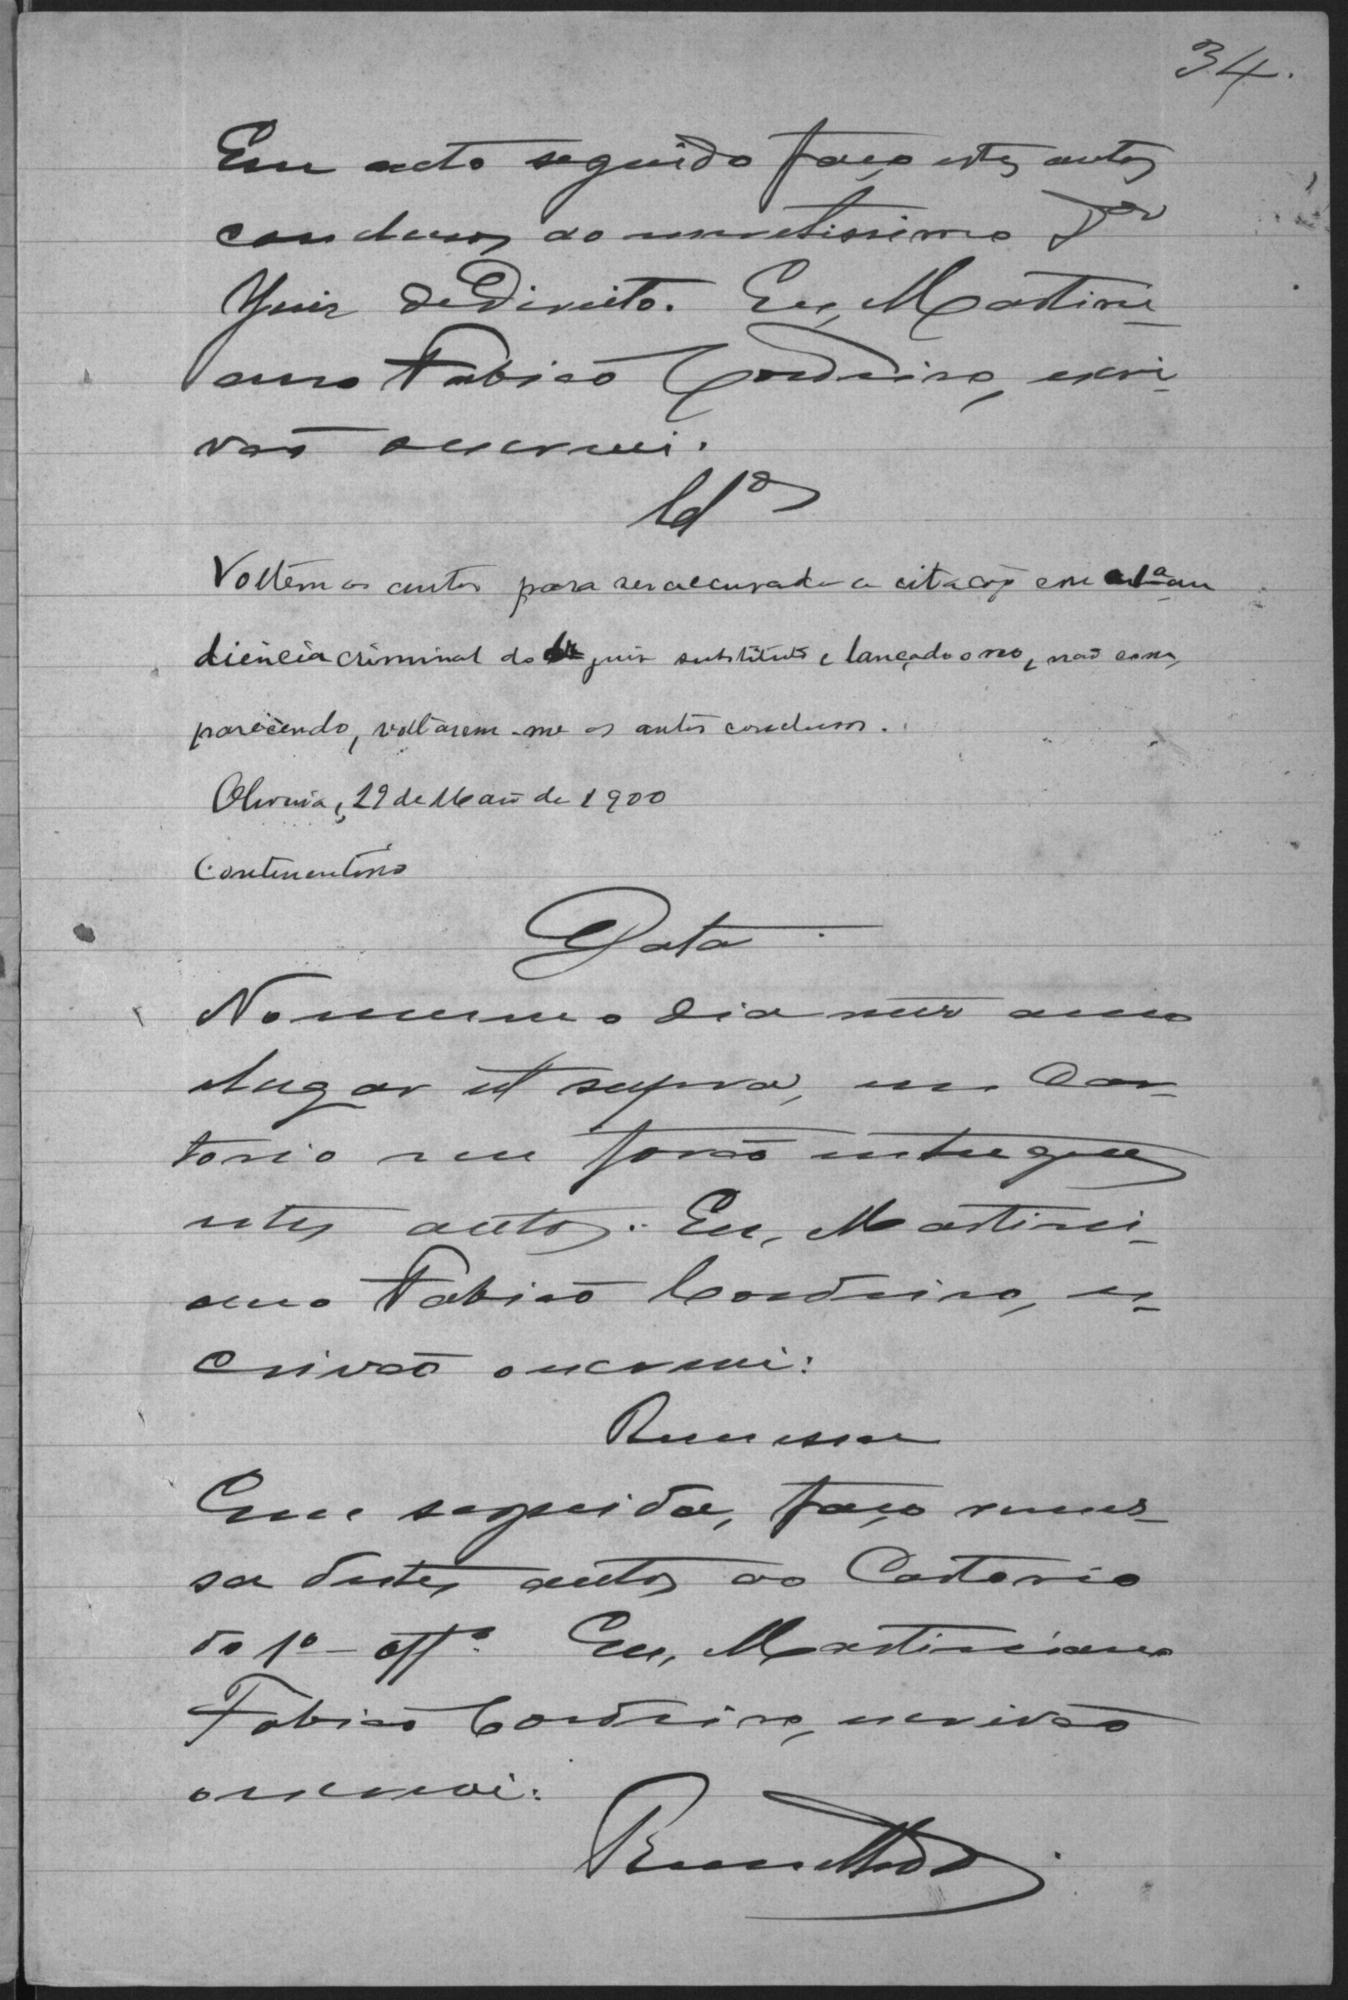 34.
Em acto seguido faço estes autos
conclusos ao meretissimo Dor
Juiz de Direito. Eu, Martini-
ano Fabião Cordeiro, escri-
vão o escrevi.
Clos
Voltem os autos para ser accusada a citação em a 1ª au
diencia criminal do juiz substituto e lançado o reo, não com-
parecendo, voltarem-me os autos conclusos.
Oliveira, 29 de Maio de 1900
Continentino
Data
No mesmo dia mez anno
e lugar ut supra, em Car-
torio me forão entregues
estes autos. Eu, Martini-
ano Fabião Cordeiro, es-
crivão o escrevi:
Remessa
Em seguida, faço remes-
sa destes autos ao Cartorio
do 1º offº. Eu, Martiniano
Fabião Cordeiro, escrivão
o escrevi:
Remettidos